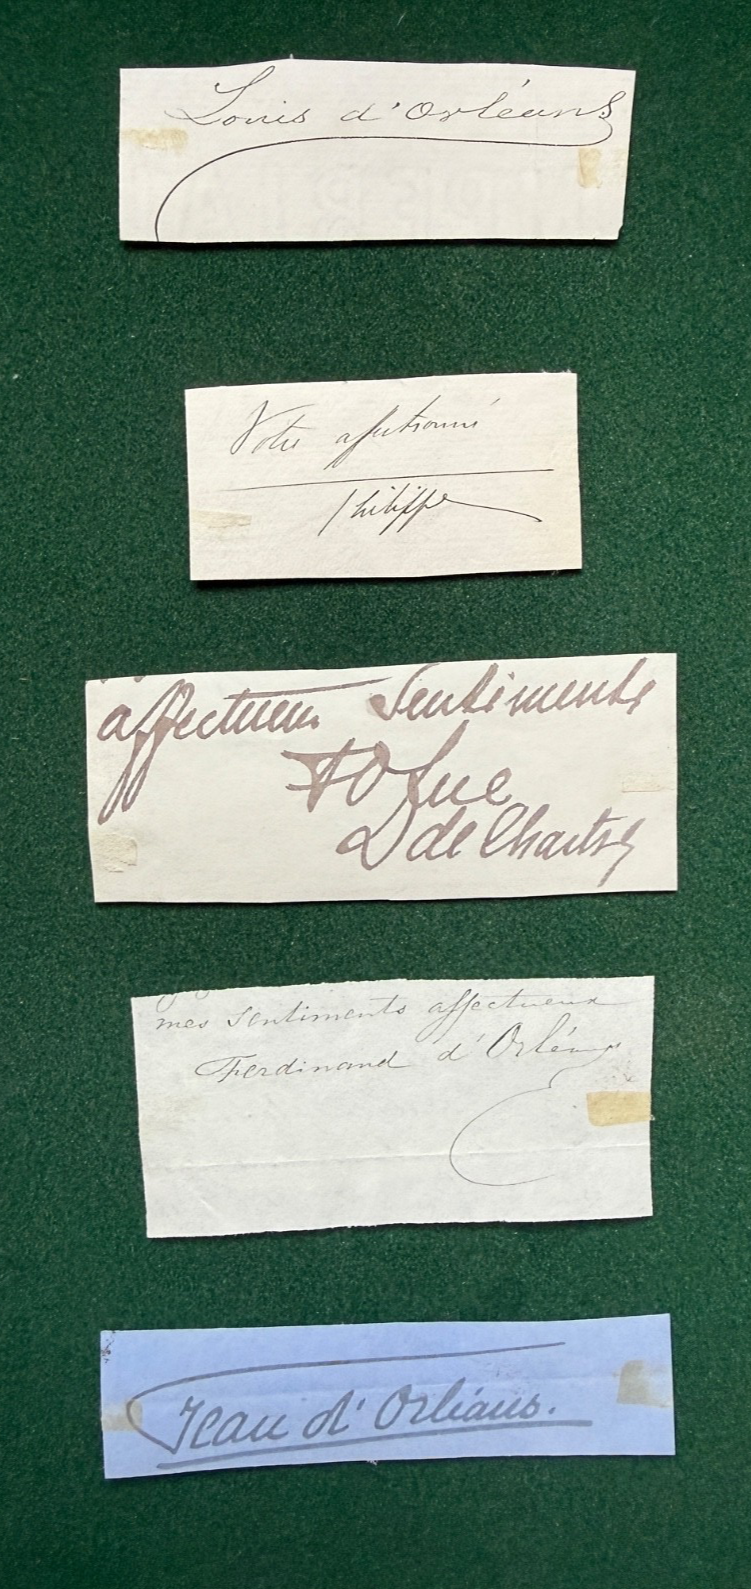 Louis d'Orléans
Votre affectionné
Philippe
affectueux Sentiments
de Chartres
mes sentiments affectueux
Ferdinand d'Orléans
Jean d'Orléans.